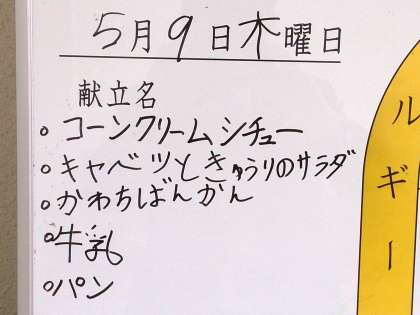 5月9日木曜日
献立名
○コーンクリームシチュー
○キャベツときゅうりのサラダ
○かわちばんかん
○牛乳
○パン
ルギー